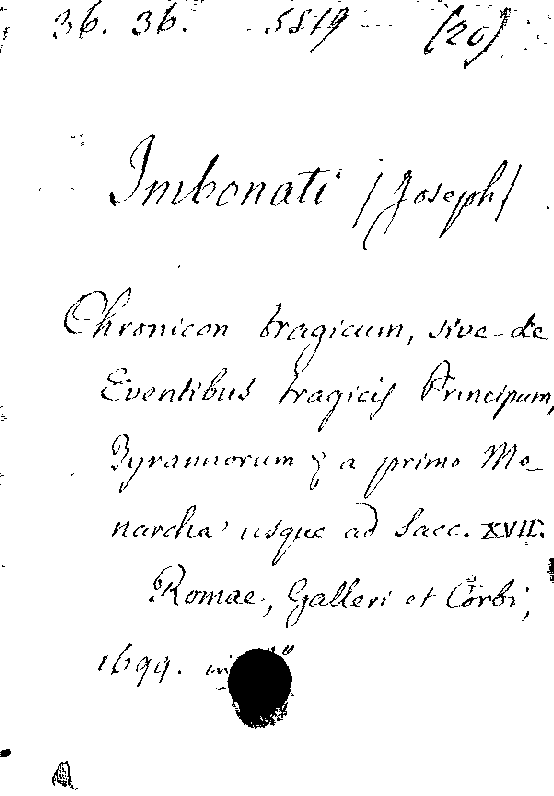 36. 36. 5819 (20)
Imbonati /Joseph/
Chronicon tragicum, sive de
Eventibus tragicis Principum,
Tyrannorum & a primo Mo-
narcha usque ad Saec. XVII.
Romae, Galleri et Corbi,
1699. in